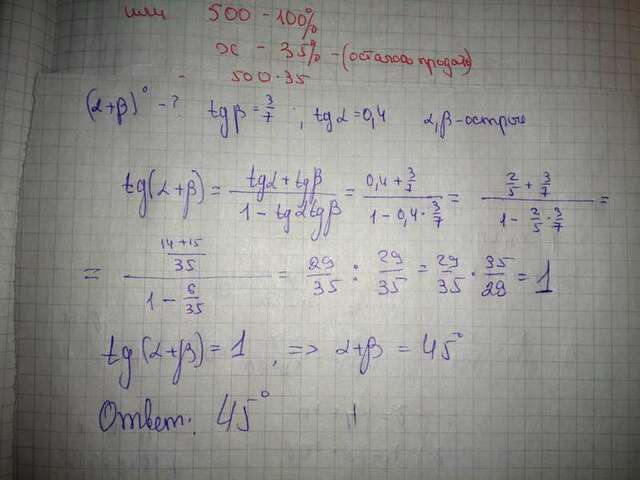 или 500 - 100%
x - 35% - (осталось продать)
500·35
(α+β)° - ? tgβ = 3/7 ; tgα = 0,4 α,β - острые
tg(α+β) = (tgα + tgβ)/(1 - tgα tgβ) = (0,4 + 3/7)/(1 - 0,4·3/7) = (2/5 + 3/7)/(1 - 2/5·3/7) =
= ((14+15)/35)/(1 - 6/35) = 29/35 : 29/35 = 29/35 · 35/29 = 1
tg(α+β) = 1, => α+β = 45°
Ответ: 45°